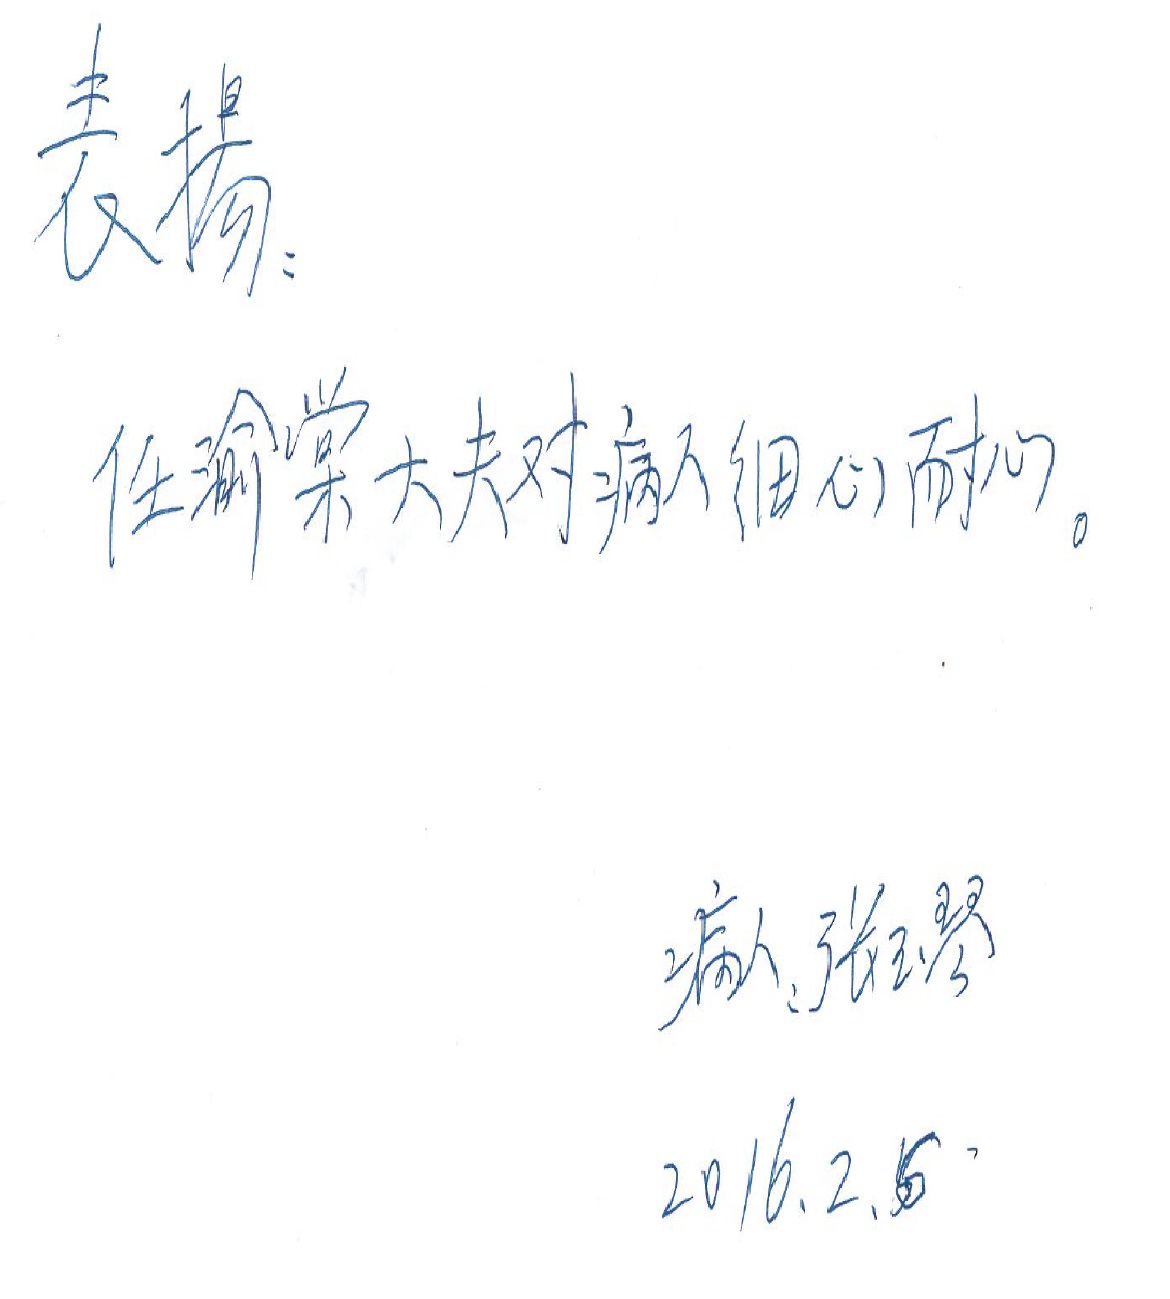 表揚:
任瑜棠大夫对病人细心耐心。
病人:张玉琴
2016.2.